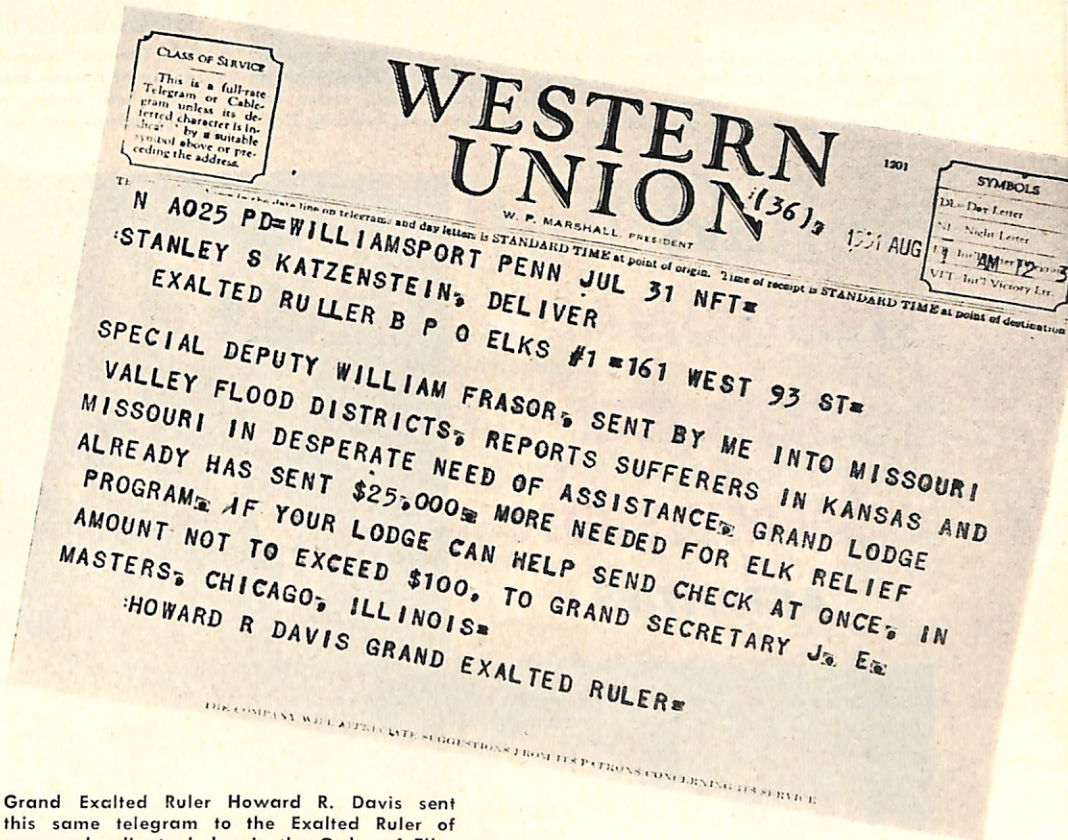 CLASS OF SERVICE
This is a full-rate
Telegram or Cable-
gram unless its de-
ferred character is in-
by a suitable
symbol above or pre-
ceding the address.
WESTERN
UNION
1201
SYMBOLS
DL= Day Letter
NL= Night Letter
VLT= Int'l Victory Ltr.
(36)
W. P. MARSHALL, PRESIDENT
1951 AUG 1 AM 12 3
line on telegrams and day letters is STANDARD TIME at point of origin. Time of receipt is STANDARD TIME at point of destination
N A025 PD=WILLIAMSPORT PENN JUL 31 NFT=
:STANLEY S KATZENSTEIN, DELIVER
EXALTED RULLER B P O ELKS #1 =161 WEST 93 ST=
SPECIAL DEPUTY WILLIAM FRASOR, SENT BY ME INTO MISSOURI
VALLEY FLOOD DISTRICTS, REPORTS SUFFERERS IN KANSAS AND
MISSOURI IN DESPERATE NEED OF ASSISTANCE. GRAND LODGE
ALREADY HAS SENT $25,000. MORE NEEDED FOR ELK RELIEF
PROGRAM. IF YOUR LODGE CAN HELP SEND CHECK AT ONCE, IN
AMOUNT NOT TO EXCEED $100, TO GRAND SECRETARY J. E.
MASTERS, CHICAGO, ILLINOIS=
:HOWARD R DAVIS GRAND EXALTED RULER=
THE COMPANY WILL APPRECIATE SUGGESTIONS FROM ITS PATRONS CONCERNING ITS SERVICE
Grand Exalted Ruler Howard R. Davis sent
this same telegram to the Exalted Ruler of